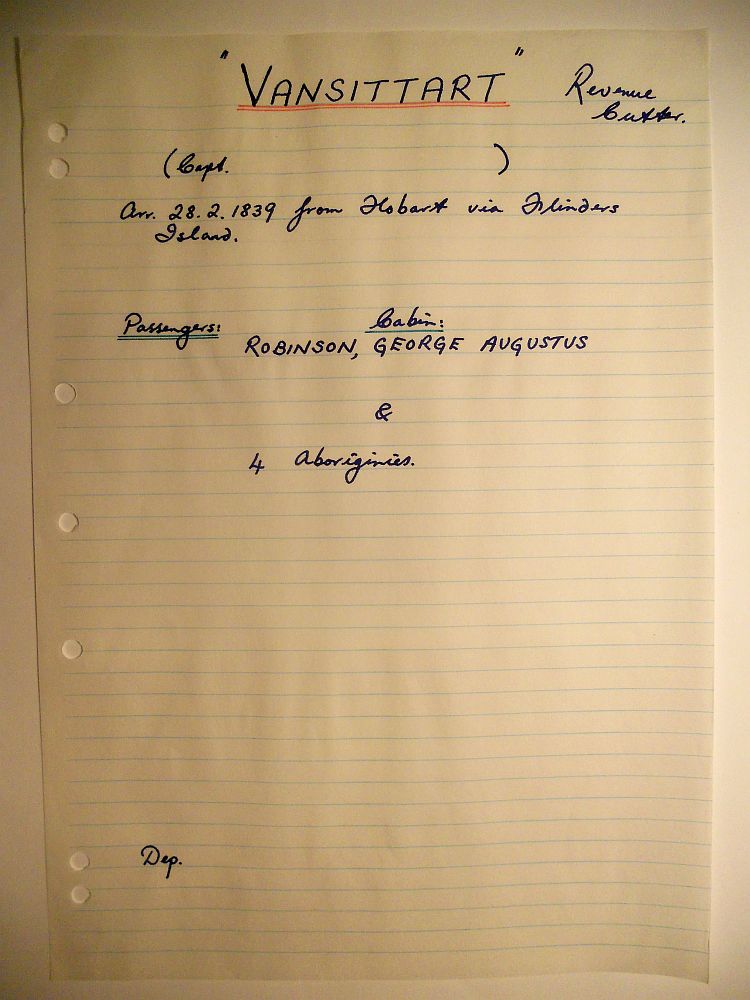 "VANSITTART" Revenue
Cutter.
(Capt. )
Arr. 28.2.1839 from Hobart via Flinders
Island.
Passengers: Cabin:
ROBINSON, GEORGE AUGUSTUS
&
4 Aboriginies.
Dep.